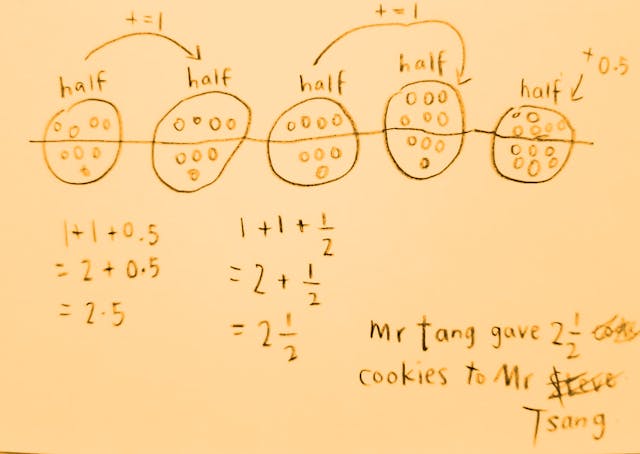 + = 1
+ = 1
half
half
half
half
half
+ 0.5
1+1+0.5
= 2 + 0.5
= 2.5
1 + 1 + 1/2
= 2 + 1/2
= 2 1/2
Mr tang gave 2 1/2
cookies to Mr Steve
Tsang